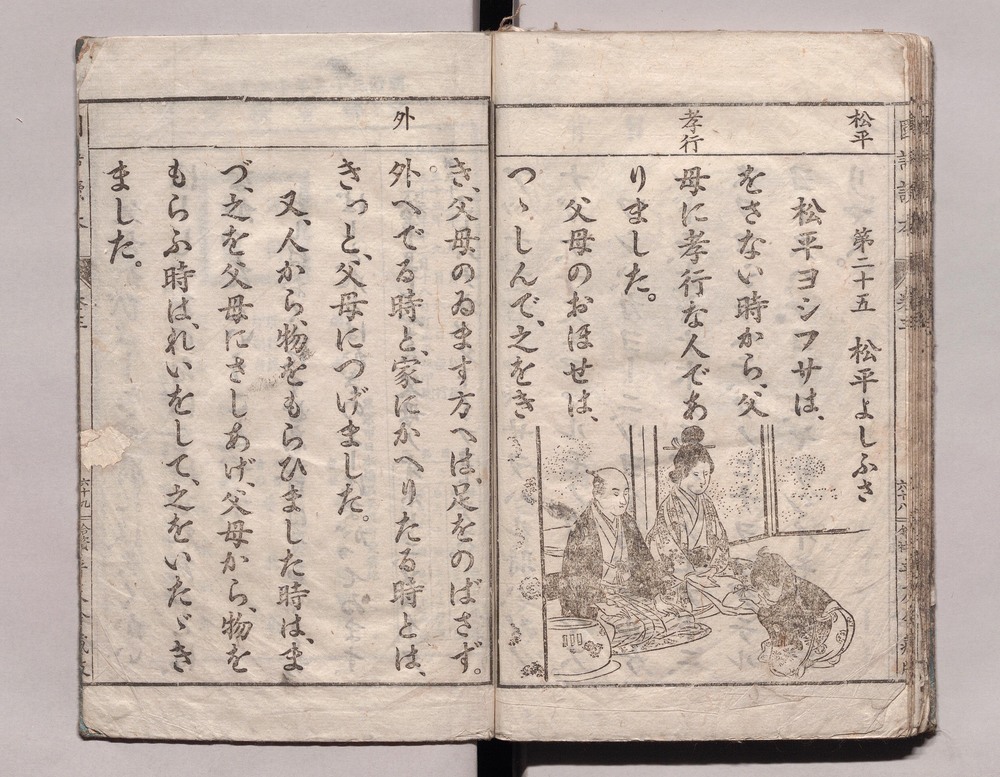 松平
孝行
第二十五 松平よしふさ
松平ヨシフサは、
をさない時から、父
母に孝行な人であ
りました。
父母のおほせは、
つゝしんで、之をき
外
き、父母のゐます方へは、足をのばさず。
外へでる時と、家にかへりたる時とは、
きっと、父母につげました。
又、人から、物をもらひました時は、ま
づ、之を父母にさしあげ、父母から、物を
もらふ時は、れいをして、之をいたゞき
ました。
六十九